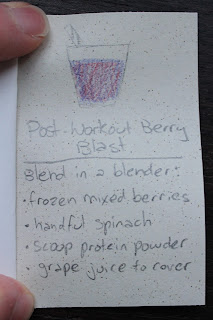 Post-Workout Berry
Blast
Blend in a blender:
• frozen mixed berries
• handful spinach
• scoop protein powder
• grape juice to cover